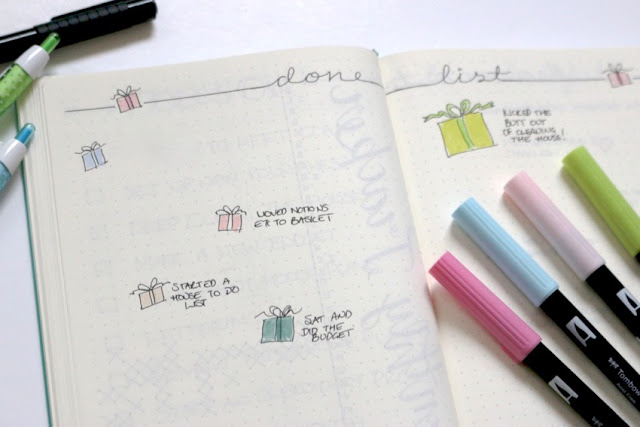 done list
KICKED THE
BUTT OUT
OF CLEANING
THE HOUSE!
MOVED NOTIONS
ETC TO BASKET
STARTED A
HOUSE TO DO
LIST
SAT AND
DID THE
BUDGET
Tombow